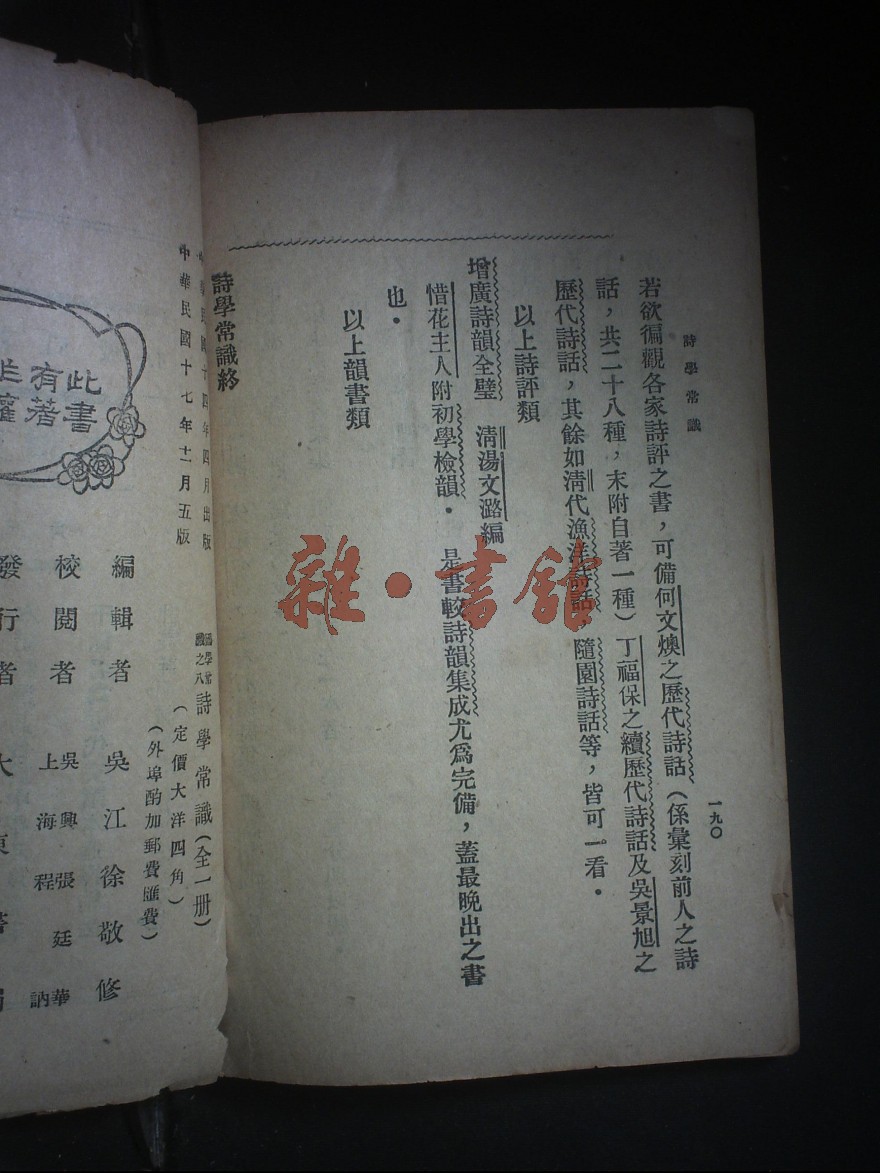 詩學常識
一九〇
若欲徧觀各家詩評之書，可備何文煥之歷代詩話（係彙刻前人之詩
話，共二十八種，末附自著一種）丁福保之續歷代詩話及吳景旭之
歷代詩話，其餘如清代漁洋詩話，隨園詩話等，皆可一看．
以上詩評類
增廣詩韻全璧　清湯文潞編
惜花主人附初學檢韻．　是書較詩韻集成尤爲完備，蓋最晚出之書
也．
以上韻書類
詩學常識終
雜·書館
民國十四年四月出版
中華民國十七年十一月五版
國學常識之八詩學常識（全一册）
（定價大洋四角）
（外埠酌加郵費匯費）
編輯者　吳江徐敬修
校閱者　吳興張廷華
上海程　訥
發行者　大東書局
此書
有著